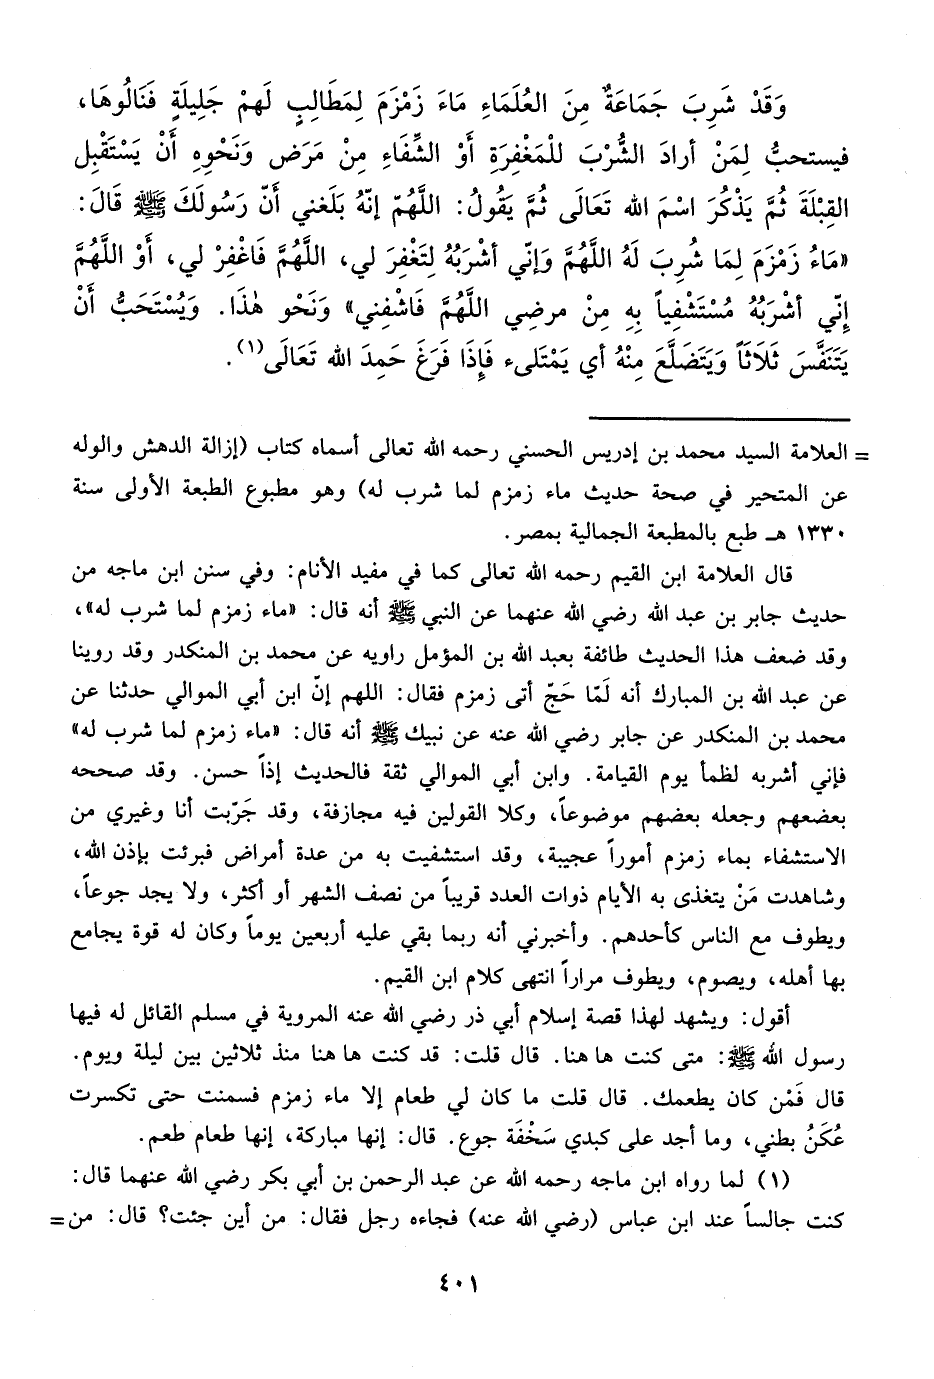 وَقَدْ شَرِبَ جَمَاعَةٌ مِنَ العُلَمَاءِ مَاءَ زَمْزَمَ لِمَطَالِبٍ لَهمْ جَلِيلَةٍ فَنَالُوهَا،
فيستحبُّ لِمَنْ أرادَ الشُّرْبَ للْمَغْفِرَةِ أَوْ الشِّفَاءِ مِنْ مَرَض وَنَحْوِهِ أَنْ يَسْتَقْبِل
القِبْلَةَ ثُمَّ يَذْكُرَ اسْمَ الله تَعَالَى ثُمَّ يَقُولُ: اللَّهُمّ إنّهُ بَلَغني أَنّ رَسُولَكَ ﷺ قَالَ:
«مَاءُ زَمْزَمَ لِمَا شُرِبَ لَهُ اللَّهُمَّ وَإِنّي أشْرَبُهُ لِتَغْفِرَ لي، اللَّهُمَّ فَاغْفِرْ لي، أَوْ اللَّهُمَّ
إِنّي أشْرَبُهُ مُسْتَشْفِياً بِهِ مِنْ مرضِي اللَّهُمَّ فَاشْفِني» وَنَحْو هٰذَا. وَيُسْتَحَبُّ أَنْ
يَتَنَفَّسَ ثَلَاثَاً وَيَتَضَلَّعَ مِنْهُ أي يَمْتَلىء فَإِذَا فَرَغَ حَمِدَ الله تَعَالَى(١).
= العلامة السيد محمد بن إدريس الحسني رحمه الله تعالى أسماه كتاب (إزالة الدهش والوله
عن المتحير في صحة حديث ماء زمزم لما شرب له) وهو مطبوع الطبعة الأولى سنة
١٣٣٠ هـ طبع بالمطبعة الجمالية بمصر.
قال العلامة ابن القيم رحمه الله تعالى كما في مفيد الأنام: وفي سنن ابن ماجه من
حديث جابر بن عبد الله رضي الله عنهما عن النبي ﷺ أنه قال: «ماء زمزم لما شرب له»،
وقد ضعف هذا الحديث طائفة بعبد الله بن المؤمل راويه عن محمد بن المنكدر وقد روينا
عن عبد الله بن المبارك أنه لَمّا حَجّ أتى زمزم فقال: اللهم إنّ ابن أبي الموالي حدثنا عن
محمد بن المنكدر عن جابر رضي الله عنه عن نبيك ﷺ أنه قال: «ماء زمزم لما شرب له»
فإني أشربه لظمأ يوم القيامة. وابن أبي الموالي ثقة فالحديث إذاً حسن. وقد صححه
بعضعهم وجعله بعضهم موضوعاً، وكلا القولين فيه مجازفة، وقد جَرّبت أنا وغيري من
الاستشفاء بماء زمزم أموراً عجيبة، وقد استشفيت به من عدة أمراض فبرئت بإذن الله،
وشاهدت مَنْ يتغذى به الأيام ذوات العدد قريباً من نصف الشهر أو أكثر، ولا يجد جوعاً،
ويطوف مع الناس كأحدهم. وأخبرني أنه ربما بقي عليه أربعين يوماً وكان له قوة يجامع
بها أهله، ويصوم، ويطوف مراراً انتهى كلام ابن القيم.
أقول: ويشهد لهذا قصة إسلام أبي ذر رضي الله عنه المروية في مسلم القائل له فيها
رسول الله ﷺ: متى كنت ها هنا. قال قلت: قد كنت ها هنا منذ ثلاثين بين ليلة ويوم.
قال فَمْن كان يطعمك. قال قلت ما كان لي طعام إلا ماء زمزم فسمنت حتى تكسرت
عُكَنُ بطني، وما أجد على كبدي سَخْفَة جوع. قال: إنها مباركة، إنها طعام طعم.
(١) لما رواه ابن ماجه رحمه الله عن عبد الرحمن بن أبي بكر رضي الله عنهما قال:
كنت جالساً عند ابن عباس (رضي الله عنه) فجاءه رجل فقال: من أين جئت؟ قال: من =
٤٠١